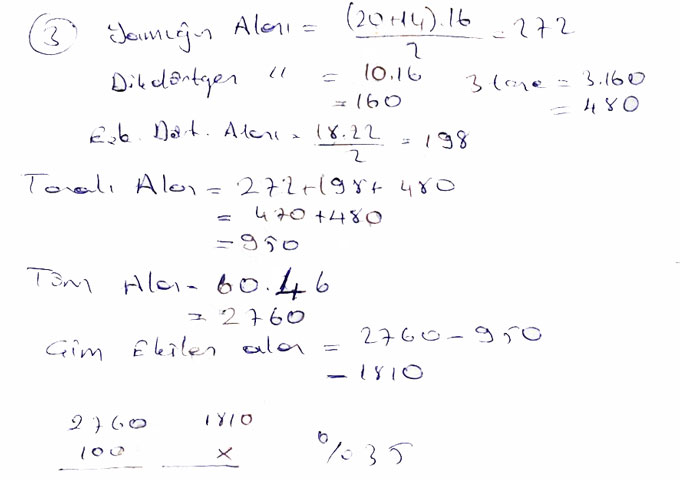 ③ Yamuğun Alanı = (20+14).16 / 2 = 272
Dikdörtgen " = 10.16 3 tane = 3.160
= 160 = 480
Eşk. Dört. Alanı = 18.22 / 2 = 198
Taralı Alan = 272+198+480
= 470+480
= 950
Tüm Alan = 60.46
= 2760
Çim Ekilen alan = 2760 - 950
- 1810
2760 1810
100 x % 35